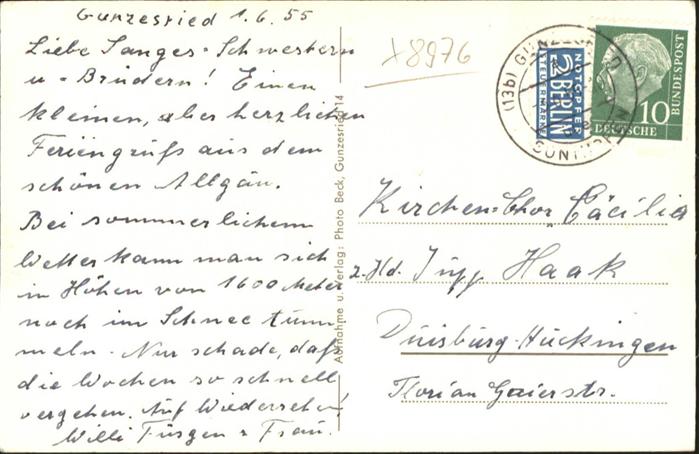 Gunzesried 1.6.55
Liebe Sanges-Schwestern
u-Brüdern! Einen
kleinen, aber herzlichen
Feriengruß aus dem
schönen Allgäu.
Bei sommerlichem
Wetter kann man sich
in Höhen von 1600 Meter
noch im Schnee tum
meln. Nur schade, daß
die Wochen so schnell
vergehen. Auf Wiedersehen!
Willi Füsgen u Frau.
Aufnahme u. Verlag: Photo Beck, Gunzesried 14
x8976
(13b) GUNZESRIED
SONTHOFEN
NOTOPFER
2 BERLIN
STEUERMARKE
DEUTSCHE
BUNDESPOST
10
Kirchen-Chor Cäcilia
z.Hd. Jupp Haak
Duisburg-Huckingen
Florian Geierstr.